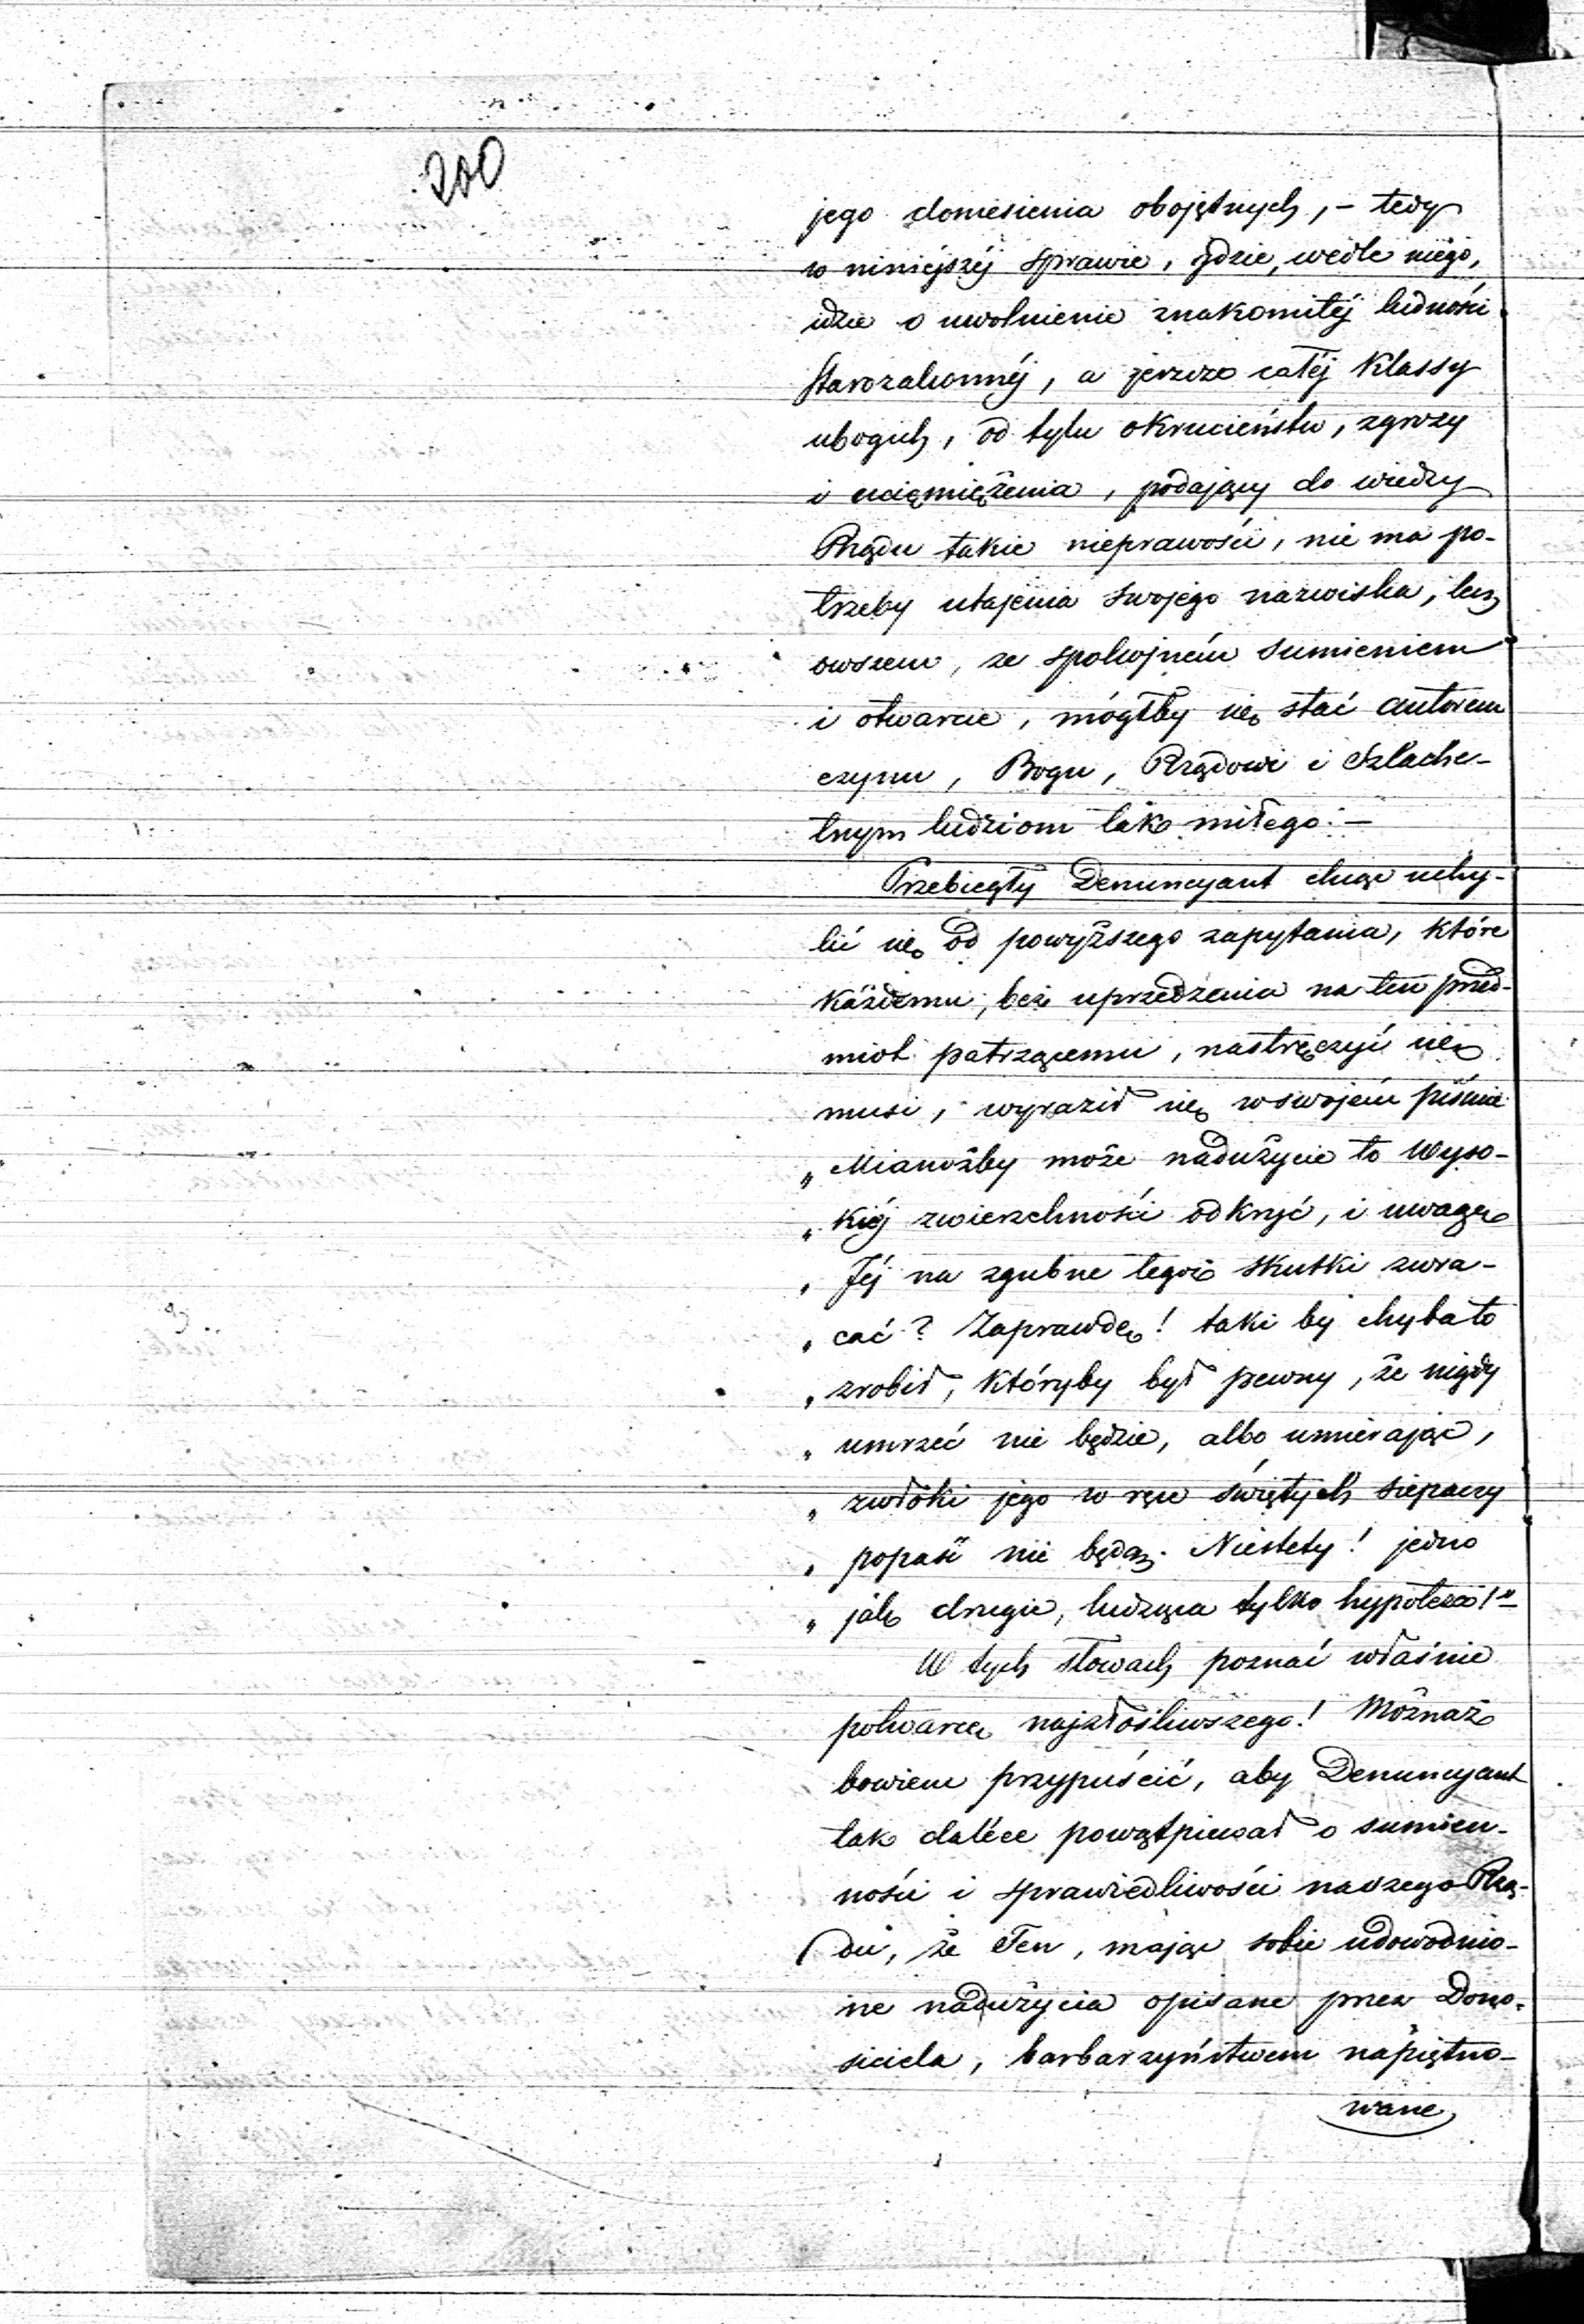 200
jego doniesienia obojętnych, – tedy
w niniejszéj sprawie, gdzie, wedle niego,
idzie o uwolnienie znakomitéj ludności
Starozakonnéj, a jeszcze całéj Klassy
ubogich, od tylu okrucieństw, zgrozy
i uciemiężenia, podający do wiedzy
Rządu takie nieprawości, nie ma po-
trzeby utajenia swojego nazwiska, lecz
owszem, ze spokojném sumieniem
i otwarcie, mógłby się stać autorem
czynu, Bogu, Rządowi i Szlache-
tnym ludziom tak miłego. –
Przebiegły Denuncyant chcąc uchy-
lić się od powyższego zapytania, które
każdemu, bez uprzedzenia na ten przed-
miot patrzącemu, nastręczyć się
musi, wyraził się w swojém piśmie
„ Mianożby może nadużycie to Wyso-
„ kiéj zwierzchności odkryć, i uwagę
„ Jéj na zgubne tegoż skutki zwra-
„ cać? Zaprawdę! taki by chyba to
„ zrobił, któryby był pewny, że nigdy
„ umrzeć nie będzie, albo umierając,
„ zwłoki jego w ręce świętych siepaczy
„ popaść nie będą. Niestety! jedno
„ jak drugie, łudząca tylko hypoteza!" –
W tych słowach poznać właśnie
potwarcę najzłośliwszego! Możnaż
bowiem przypuścić, aby Denuncyant
tak daléce powątpiewał o sumien-
ności i sprawiedliwości naszego Rzą-
du, że Ten, mając sobie udowodnio-
ne nadużycia opisane przez Dono-
siciela, barbarzyństwem napiętno-
wane